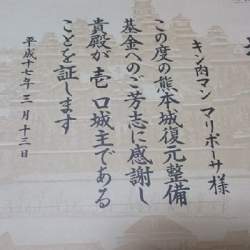 キン肉マン マリポーサ様
この度の熊本城復元整備
基金へのご芳志に感謝し
貴殿が壱 口城主である
ことを証します
平成十七年 三 月 十三日